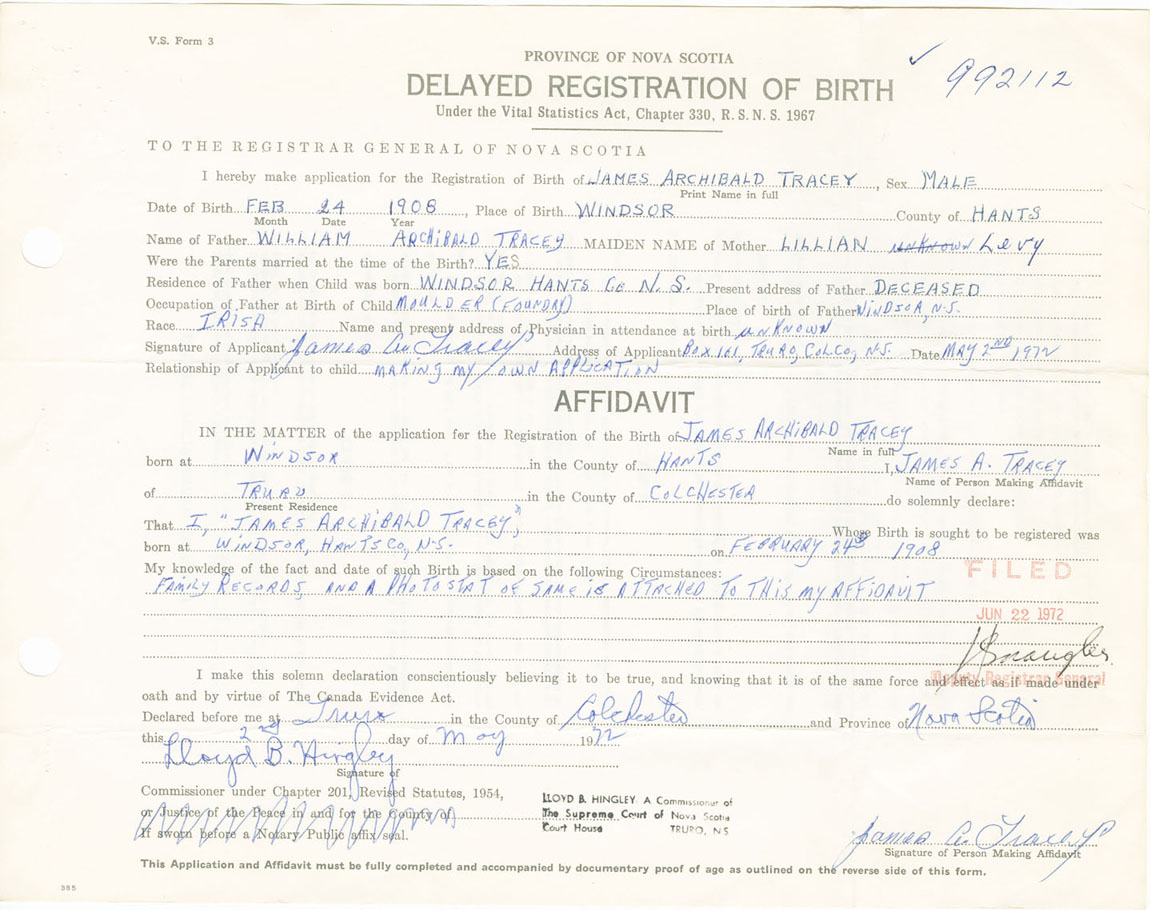 V.S. Form 3
PROVINCE OF NOVA SCOTIA
DELAYED REGISTRATION OF BIRTH ✓ 992112
Under the Vital Statistics Act, Chapter 330, R.S.N.S. 1967
TO THE REGISTRAR GENERAL OF NOVA SCOTIA
I hereby make application for the Registration of Birth of JAMES ARCHIBALD TRACEY, Sex MALE
Print Name in full
Date of Birth FEB 24 1908, Place of Birth WINDSOR County of HANTS
Month Date Year
Name of Father WILLIAM ARCHIBALD TRACEY MAIDEN NAME of Mother LILLIAN unKnown Levy
Were the Parents married at the time of the Birth? YES
Residence of Father when Child was born WINDSOR HANTS Co N.S. Present address of Father DECEASED
Occupation of Father at Birth of Child MOULDER (FOUNDRY) Place of birth of Father WINDSOR, N.S.
Race IRISH Name and present address of Physician in attendance at birth unKNOWN
Signature of Applicant James A. Tracey Address of Applicant BOX 101, TRURO, COL.CO, N.S. Date MAY 2ND 1972
Relationship of Applicant to child MAKING MY OWN APPLICATION
AFFIDAVIT
IN THE MATTER of the application for the Registration of the Birth of JAMES ARCHIBALD TRACEY
Name in full
born at WINDSOR in the County of HANTS I, JAMES A. TRACEY
Name of Person Making Affidavit
of TRURO in the County of COLCHESTER do solemnly declare:
Present Residence
That I, "JAMES ARCHIBALD TRACEY," Whose Birth is sought to be registered was
born at WINDSOR, HANTS CO, N.S. on FEBRUARY 24 1908
My knowledge of the fact and date of such Birth is based on the following Circumstances:
FAMILY RECORDS, AND A PHOTOSTAT OF SAME IS ATTACHED TO THIS MY AFFIDAVIT
FILED
JUN 22 1972
Deputy Registrar General
I make this solemn declaration conscientiously believing it to be true, and knowing that it is of the same force and effect as if made under
oath and by virtue of The Canada Evidence Act.
Declared before me at Truro in the County of Colchester and Province of Nova Scotia
this 2nd day of May 1972
Lloyd B. Hingley
Signature of
Commissioner under Chapter 201, Revised Statutes, 1954,
or Justice of the Peace in and for the County of
If sworn before a Notary Public affix seal.
LLOYD B. HINGLEY A Commissioner of
The Supreme Court of Nova Scotia
Court House TRURO, NS
James A. Tracey
Signature of Person Making Affidavit
This Application and Affidavit must be fully completed and accompanied by documentary proof of age as outlined on the reverse side of this form.
385